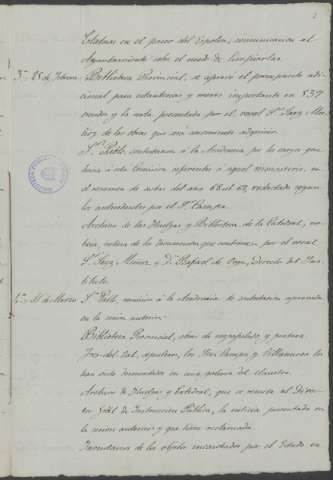 2
Estatuas en el paseo del Espolon, comunicacion al
Ayuntamiento sobre el modo de limpiarlas
3ª 25 de Febrero. Biblioteca Provincial, se aprobó el presupuesto adi-
cional para estanterias y mesas importante en 537
escudos y la nota presentada por el vocal Sr. Mar-
tinez de las obras que era conveniente adquirir
Sn. Pablo, contestacion á la Academia por los cargos que
hacia á esta Comision referentes á aquel monasterio, en
el resumen de actas del año 68 al 69, redactado segun
los antecedentes por el Sr. Campo
Archivo de las Huelgas y Biblioteca de la Catedral, no-
ticia, de los documentos que contienen por el vocal
Sr. Mtnez. y D. Rafael de Vega, Director del Ins-
tituto
4ª 11 de Marzo Sn. Pablo, remision á la Academia la contestacion aprobada
en la sesion anterior
Biblioteca Provincial, obras de empapelado y pintura
Fres-del-Val, sepulcro, los Sres. Campo y Villanueva los
han sido desmontados en una galeria del claustro
Archivo de Huelgas y Catedral, que se remita al Direc-
tor Gral. de Instruccion Publica, la noticia presentada en
la sesion anterior y que tiene reclamada.
Inventarios de los objetos incautados por el Estado en